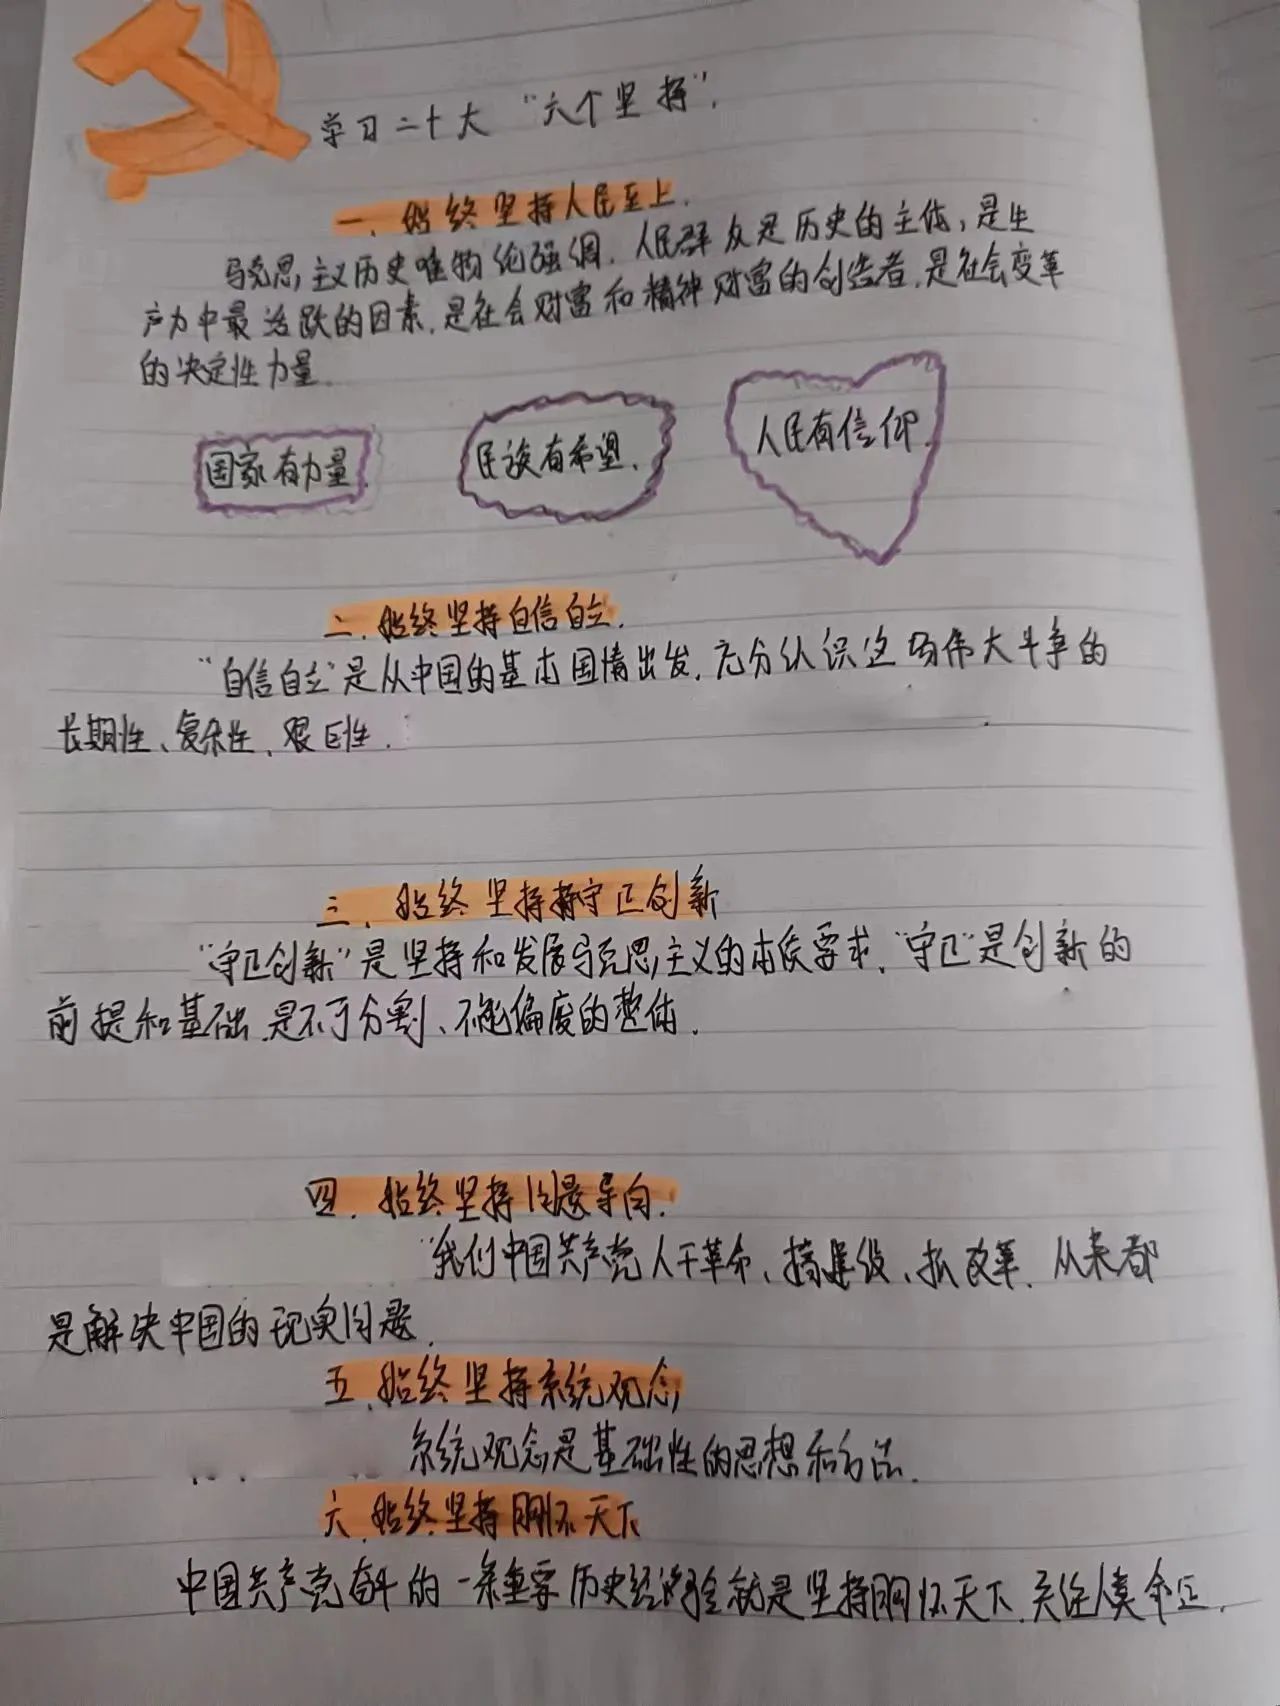 学习二十大“六个坚持”.
一、始终坚持人民至上.
马克思主义历史唯物论强调.人民群众是历史的主体,是生
产力中最活跃的因素,是社会财富和精神财富的创造者,是社会变革
的决定性力量.
国家有力量
民族有希望.
人民有信仰.
二.始终坚持自信自立.
“自信自立”是从中国的基本国情出发,充分认识这场伟大斗争的
长期性、复杂性、艰巨性.
三、始终坚持持守正创新
“守正创新”是坚持和发展马克思主义的本质要求,“守正”是创新的
前提和基础.是不可分割、不能偏度的整体.
四.始终坚持问题导向.
“我们中国共产党人干革命、搞建设、抓改革.从来都
是解决中国的现实问题.
五.始终坚持系统观念
系统观念是基础性的思想和方法.
六.始终坚持胸怀天下
中国共产党奋斗的一条重要历史经验就是坚持胸怀天下.关注人类命运.